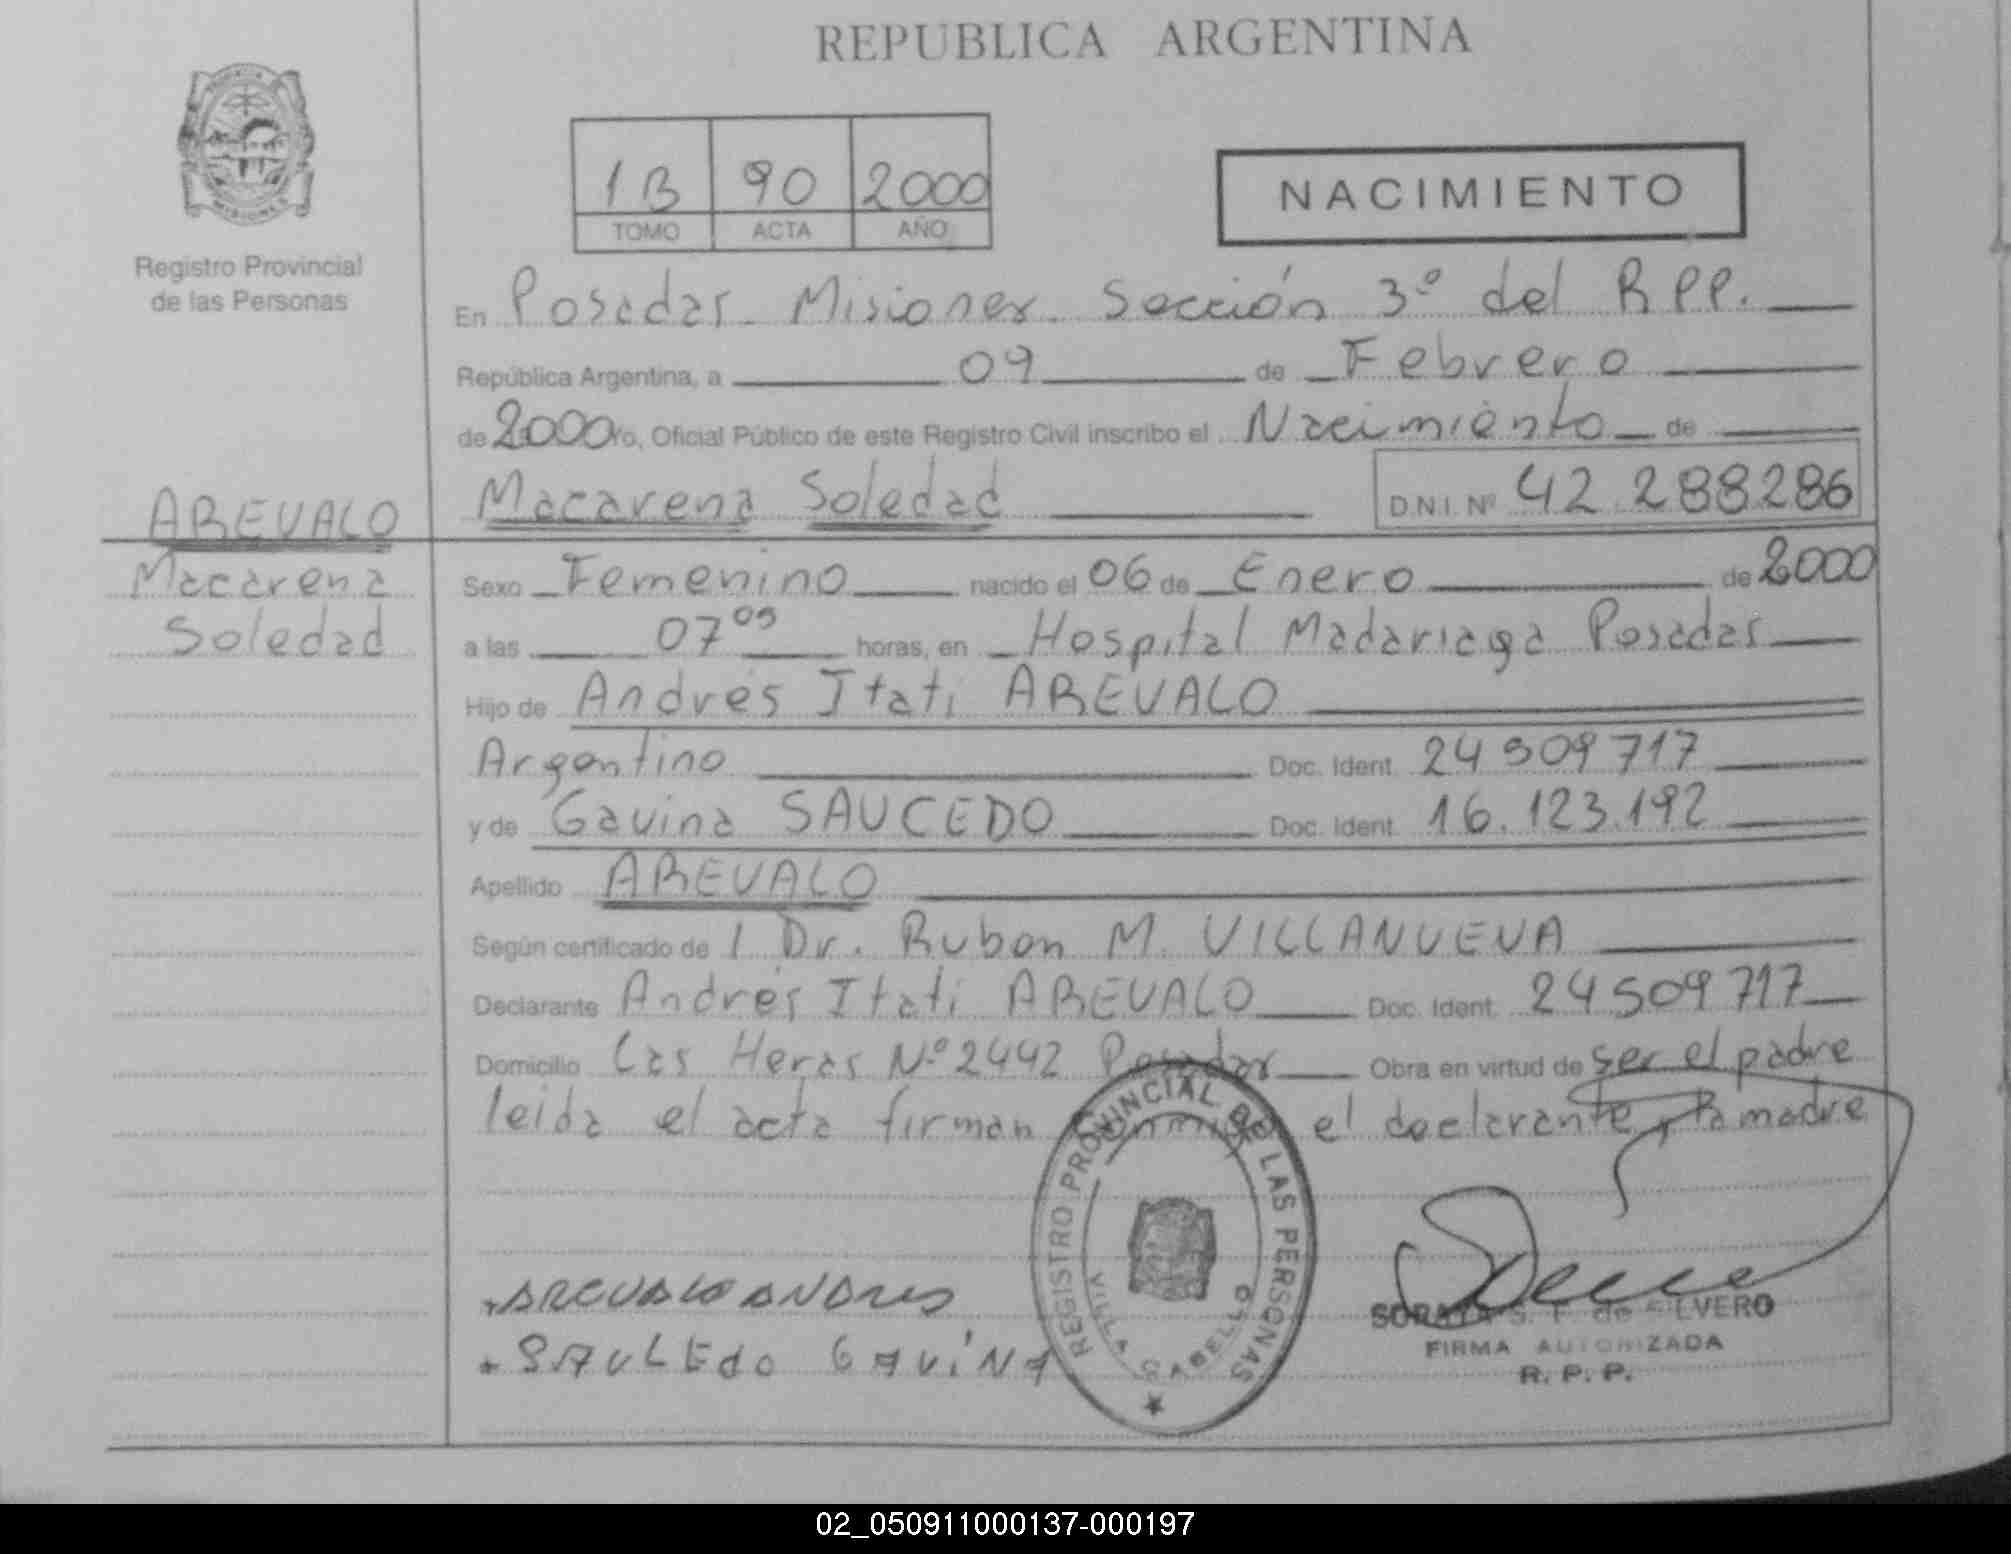 REPUBLICA ARGENTINA
PROVINCIA
MISIONES
Registro Provincial
de las Personas
1B 90 2000
TOMO ACTA AÑO
NACIMIENTO
En Posadas Misiones Sección 3º del RPP.
República Argentina, a 09 de Febrero
de 2000 yo, Oficial Público de este Registro Civil inscribo el Nacimiento de
Macarena Soledad D.N.I. Nº 42.288286
AREVALO
Macarena
Soledad
Sexo Femenino nacido el 06 de Enero de 2000
a las 07 05 horas, en Hospital Madariaga Posadas
Hijo de Andrés Itatí AREVALO
Argentino Doc. Ident. 24509717
y de Gavina SAUCEDO Doc. Ident. 16.123.192
Apellido AREVALO
Según certificado de 1 Dr. Ruben M. VILLANUEVA
Declarante Andrés Itatí AREVALO Doc. Ident. 24509717
Domicilio Las Heras Nº 2442 Posadas Obra en virtud de ser el padre
leida el acta firman conmigo el declarante y la madre
REGISTRO PROVINCIAL DE LAS PERSONAS
VILLA CABELLO
AREVALO ANDRES
SAUCEdo GAVINA
SORAYA S. F. de SILVERO
FIRMA AUTORIZADA
R. P. P.
02_050911000137-000197